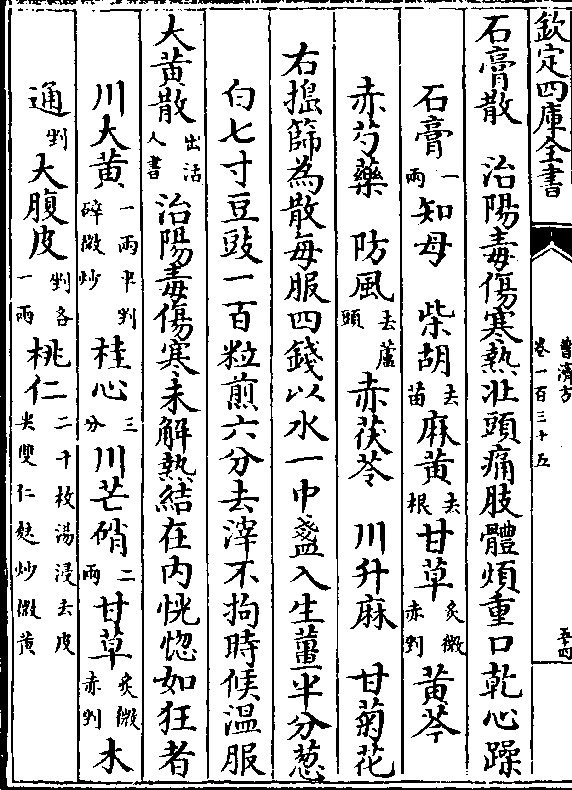 欽定四庫全書 普濟方 卷一百三十五 五四
石膏散 治陽毒傷寒熱壯頭痛肢體煩重口乾心躁
石膏一兩 知母 柴胡去苗 麻黃去根 甘草炙微赤剉 黃芩
赤芍藥 防風去蘆頭 赤茯苓 川升麻 甘菊花
右搗篩為散每服四錢以水一中盞入生薑半分葱
白七寸豆豉一百粒煎六分去滓不拘時候溫服
大黃散出活人書 治陽毒傷寒未解熱結在内恍惚如狂者
川大黃一兩半剉碎微炒 桂心三分 川芒硝二兩 甘草炙微赤剉 木
通剉 大腹皮剉各一兩 桃仁二十枚湯浸去皮尖雙仁麩炒微黃